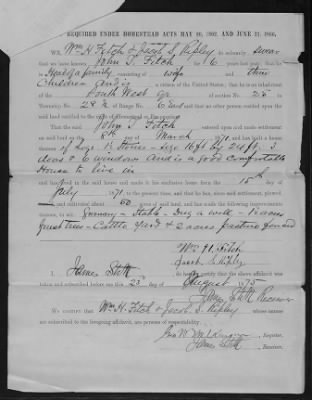 REQUIRED UNDER HOMESTEAD ACTS MAY 20, 1862, AND JUNE 21, 1866.
WE, Wm H. Fitch & Jacob S. Ripley do solemnly swear
that we have known John T. Fitch for 6 years last past; that he
is Head of a family consisting of wife and three
Children and is a citizen of the United States; that he is an inhabitant
of the South West qr of section No. 25 in
Township No. 28 N of Range No. 6 East and that no other person resided upon the
said land entitled to the right of Homestead or Pre-emption.
That the said John T Fitch entered upon and made settlement
on said land on the 8th day of March 1871, and has built a house
thereon of Logs - size 16 ft by 24 ft. 3
doors & 6 windows And is a good Comfortable
House to live in
and has lived in the said house and made it his exclusive home from the 15th day of
July 1871, to the present time, and that he has, since said settlement, plowed,
and cultivated about 60 acres of said land, and has made the following improvements
thereon, to wit: Granary - Stable - Dug a well -
fruit trees - Cattle yard & 2 acres pasture fenced
Wm H. Fitch
Jacob S. Ripley
I, James Stott do hereby certify that the above affidavit was
taken and subscribed before me this 23d day of August 1875
James Stott Receiver
WE CERTIFY that Wm H. Fitch & Jacob S. Ripley whose names
are subscribed to the foregoing affidavit, are persons of respectability.
Register.
James Stott, Receiver.